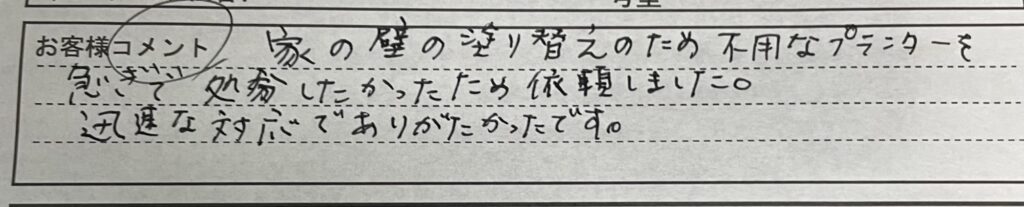 お客様コメント 家の壁の塗り替えのため不用なプランターを
急ぎで処分したかったため依頼しました。
迅速な対応でありがたかったです。